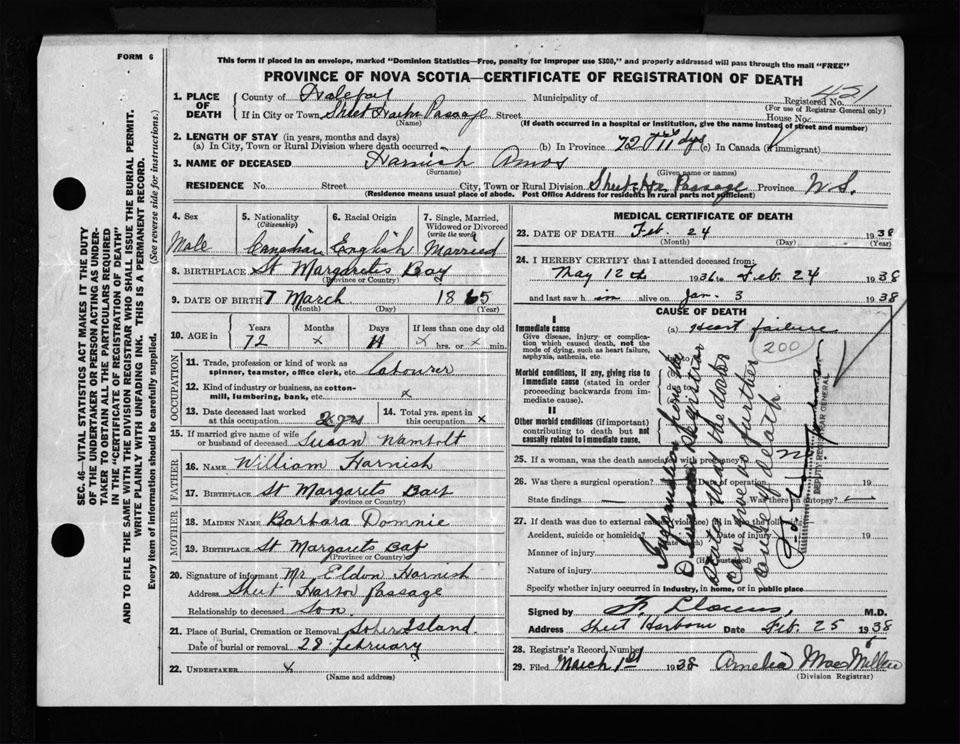 FORM 6
This form if placed in an envelope, marked "Dominion Statistics—Free, penalty for improper use $300," and properly addressed will pass through the mail "FREE"
PROVINCE OF NOVA SCOTIA—CERTIFICATE OF REGISTRATION OF DEATH
431
1. PLACE OF DEATH County of Halifax Municipality of Registered No.
(For use of Registrar General only)
If in City or Town, Sheet Harbor Passage Street House No.
(Name) (If death occurred in a hospital or institution, give the name instead of street and number)
2. LENGTH OF STAY (in years, months and days)
(a) In City, Town or Rural Division where death occurred (b) In Province 72 yrs 11 dys (c) In Canada (if immigrant)
3. NAME OF DECEASED Harnish Amos
(Surname) (Given name or names)
RESIDENCE No. Street City, Town or Rural Division Sheet Hr Passage Province N.S.
(Residence means usual place of abode. Post Office Address for residents in rural parts not sufficient)
4. Sex
Male
5. Nationality
(Citizenship)
Canadian
6. Racial Origin
English
7. Single, Married, Widowed or Divorced
(write the word)
Married
8. BIRTHPLACE St Margarets Bay
(Province or Country)
9. DATE OF BIRTH 7 March 1865
(Month) (Day) (Year)
10. AGE in
Years Months Days If less than one day old
72 x 11 x hrs. or x min.
OCCUPATION
11. Trade, profession or kind of work as spinner, teamster, office clerk, etc. Labourer
12. Kind of industry or business, as cotton-mill, lumbering, bank, etc. x
13. Date deceased last worked at this occupation 2 yrs
14. Total yrs. spent in this occupation x
15. If married give name of wife or husband of deceased Susan Wambolt
FATHER
16. NAME William Harnish
17. BIRTHPLACE St Margarets Bay
(Province or Country)
MOTHER
18. MAIDEN NAME Barbara Domnie
19. BIRTHPLACE St Margarets Bay
(Province or Country)
20. Signature of informant Mr Eldon Harnish
Address Sheet Harbor Passage
Relationship to deceased Son
21. Place of Burial, Cremation or Removal Sober Island
Date of burial or removal 28 February
22. UNDERTAKER x
(Name and address)
MEDICAL CERTIFICATE OF DEATH
23. DATE OF DEATH Feb. 24 1938
(Month) (Day) (Year)
24. I HEREBY CERTIFY that I attended deceased from:
May 12th 1936 to Feb. 24 1938
and last saw him alive on Jan. 3 1938
CAUSE OF DEATH
I
Immediate cause (a) Heart failure
Give disease, injury or complication which caused death, not the mode of dying, such as heart failure, asphyxia, asthenia, etc.
200
Morbid conditions, if any, giving rise to immediate cause (stated in order proceeding backwards from immediate cause).
II
Other morbid conditions (if important) contributing to death but not causally related to immediate cause.
Information from the
Division Registrar
states that the doctor
can give no further
cause of death.
DEPUTY REGISTRAR GENERAL
25. If a woman, was the death associated with pregnancy?
26. Was there a surgical operation? Date of operation 19
State findings Was there an autopsy?
27. If death was due to external causes (violence) fill in also the following:
Accident, suicide or homicide? Date of injury 19
Manner of injury
Nature of injury
Specify whether injury occurred in industry, in home, or in public place
Signed by M.D.
Address Sheet Harbour Date Feb. 25 1938
28. Registrar's Record Number 6
29. Filed March 1st 1938 Amelia MacMillan
(Division Registrar)
SEC. 46—VITAL STATISTICS ACT MAKES IT THE DUTY
OF THE UNDERTAKER OR PERSON ACTING AS UNDER-
TAKER TO OBTAIN ALL THE PARTICULARS REQUIRED
IN THE "CERTIFICATE OF REGISTRATION OF DEATH"
AND TO FILE THE SAME WITH THE DIVISION REGISTRAR WHO SHALL ISSUE THE BURIAL PERMIT.
WRITE PLAINLY WITH UNFADING INK. THIS IS A PERMANENT RECORD.
Every item of information should be carefully supplied. (See reverse side for instructions.)